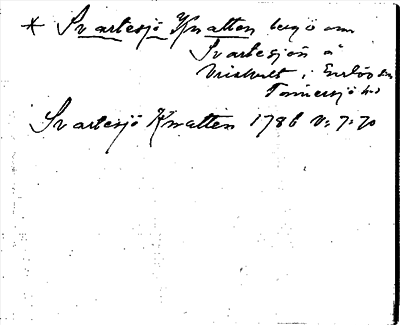 * Svartesjö Knatten berg ö om
Svartesjön å
Vrishult i
Tönnersjö hd
Svartesjö Knatten 1786 v: 7: 70